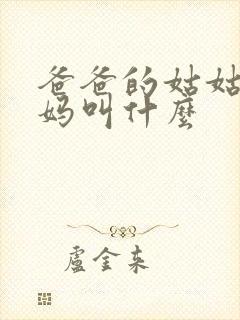 爸爸的姑姑
妈叫什麽
盧金来